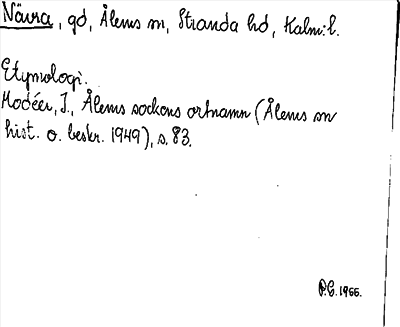 Nävra, gd, Ålems sn, Stranda hd, Kalm:l.
Etymologi.
Modéer, I., Ålems sockens ortnamn (Ålems sn
hist. o. beskr. 1949), s. 83.
P.G. 1966.